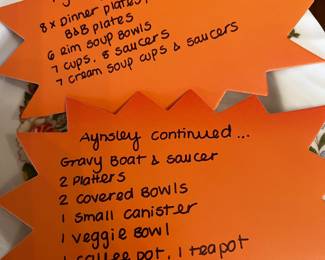 8 x Dinner plates,
B&B plates
6 Rim soup Bowls
7 cups, 8 saucers
7 cream soup cups & saucers
Aynsley continued...
Gravy Boat & saucer
2 Platters
2 covered Bowls
1 small canister
1 veggie Bowl
1 coffee pot, 1 teapot